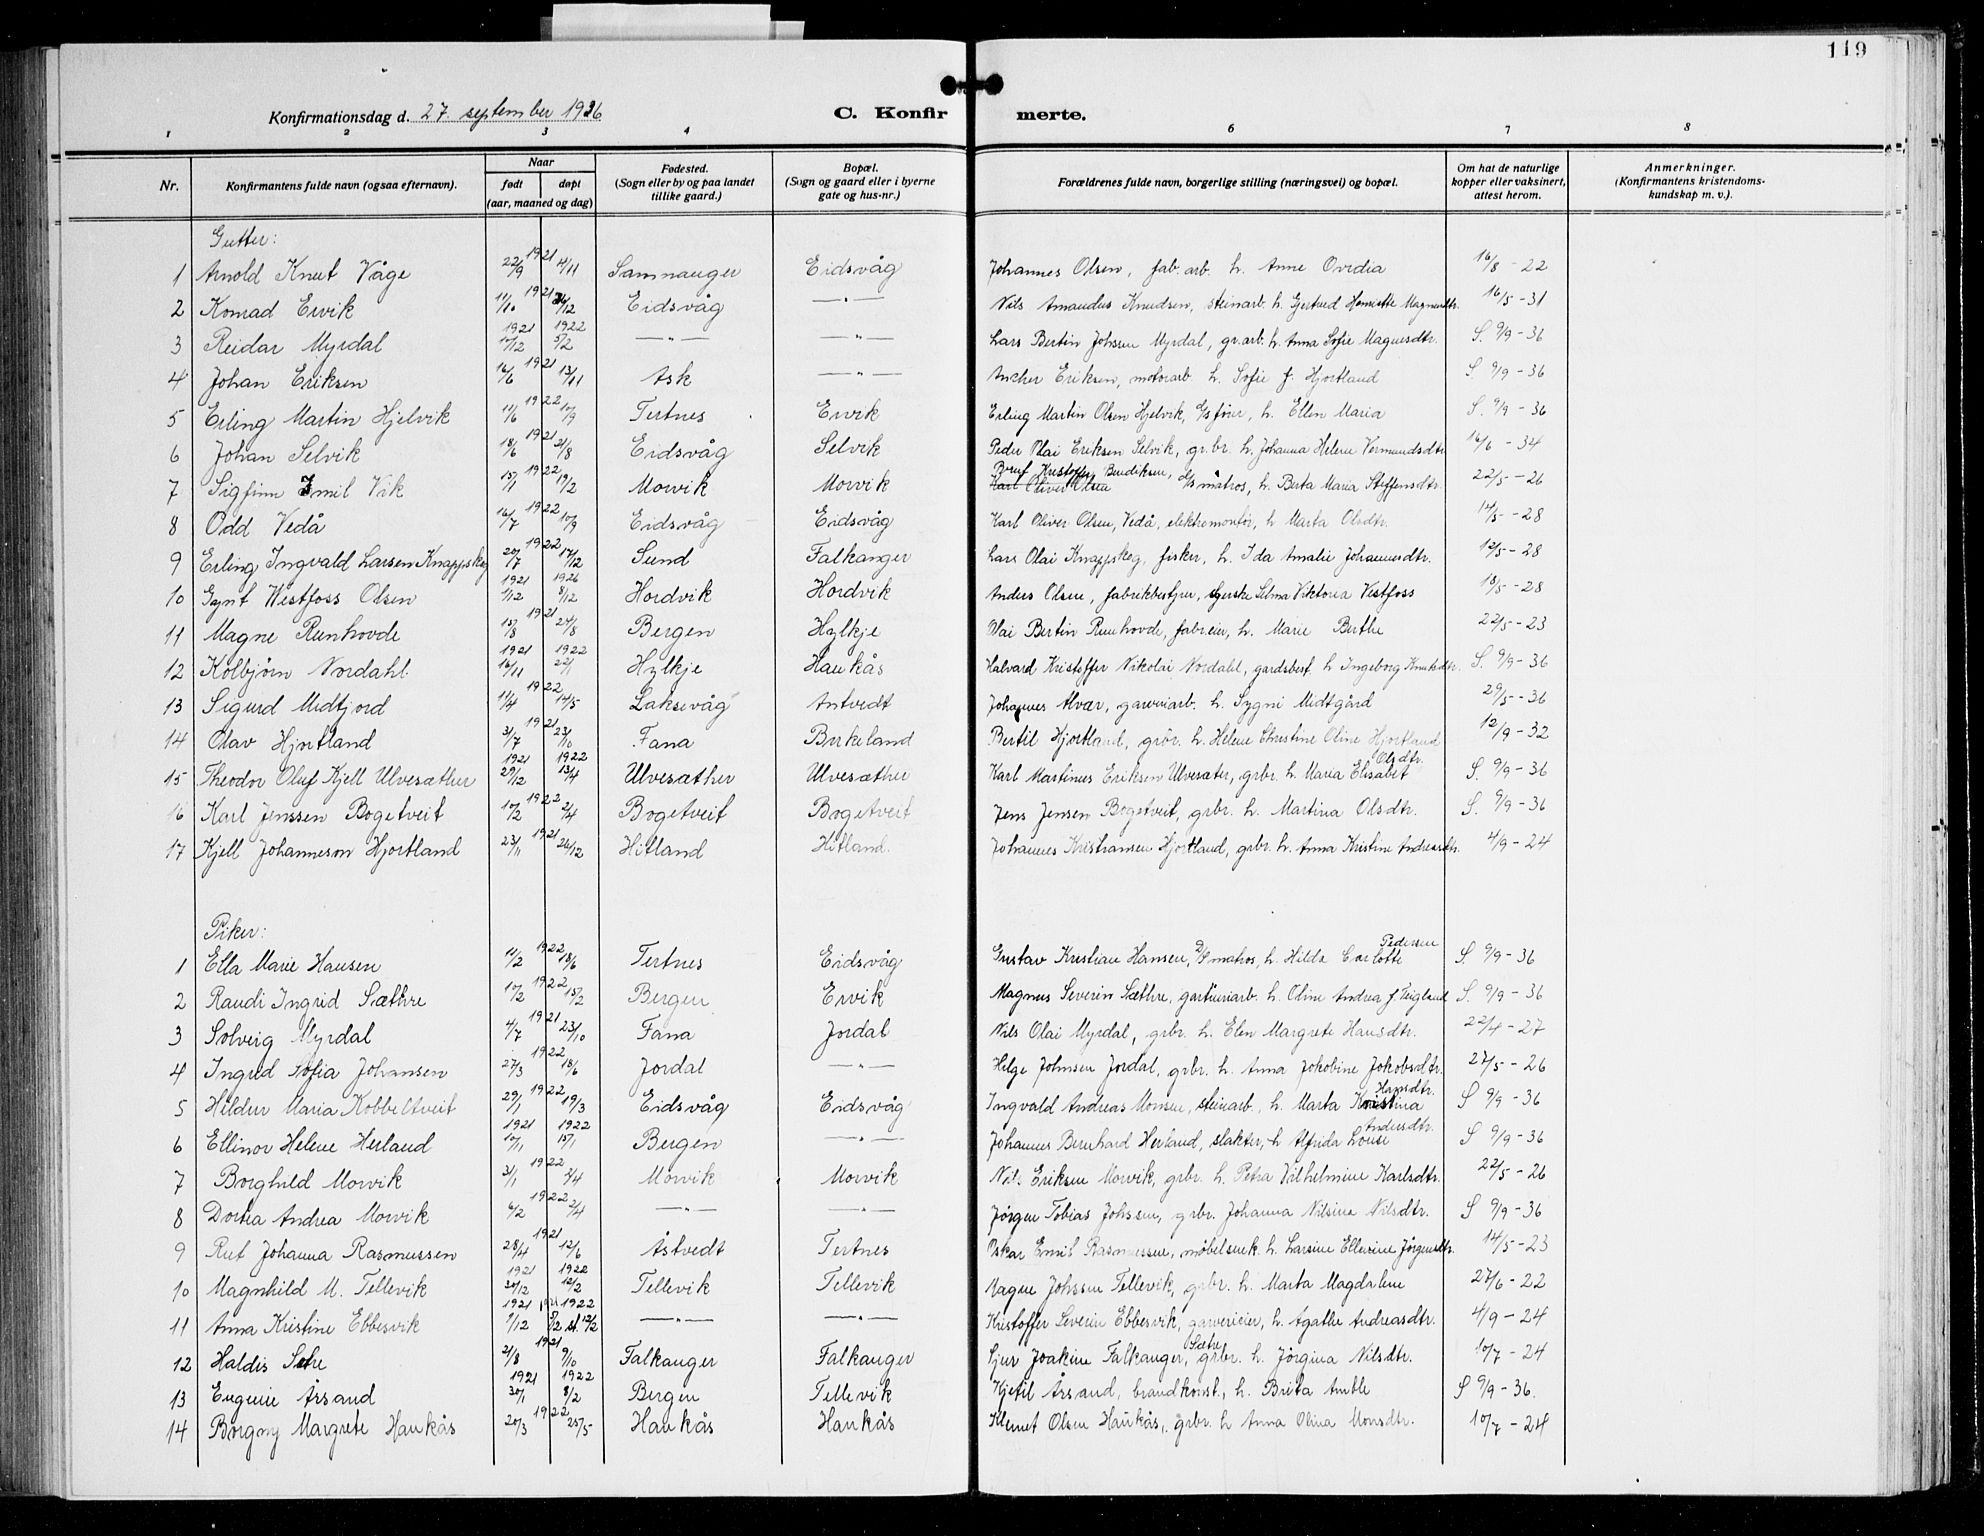 119
Konfirmationsdag d. 27. september 1936
C. Konfirmerte.
1 2 3 4 5 6 7 8
Nr. | Konfirmantens fulde navn (ogsaa efternavn). | Naar født døpt (aar, maaned og dag) | Fødested. (Sogn eller by og paa landet tillike gaard.) | Bopæl. (Sogn og gaard eller i byerne gate og hus-nr.) | Forældrenes fulde navn, borgerlige stilling (næringsvei) og bopæl. | Om hat de naturlige kopper eller vaksinert, attest herom. | Anmerkninger. (Konfirmantens kristendomskundskap m. v.).
Gutter:
1 Arnold Knut Våge 22/9 1921 4/11 Samnanger Eidsvåg Johannes Olsen, fab. arb. h. Anne Ovidia 16/8 - 22
2 Konrad Ervik 11/10 1921 26/12 Eidsvåg —"— Nils Amandus Knudsen, steinarb. h. Gjertrud Henriette Magnusdtr. 16/5 - 31
3 Reidar Myrdal 1921 10/12 1922 5/2 —"— —"— Lars Bertin Johssen Myrdal, gr.arb. h. Anna Sofie Magnesdtr. S. 9/9 - 36
4 Johan Eriksen 16/6 1921 13/11 Ask —"— Ancher Eriksen, motorarb. h. Sofie f. Hjortland S. 9/9 - 36
5 Erling Martin Hjelvik 11/6 1922 10/9 Tertnes Ervik Erling Martin Olsen Hjelvik, h. Ellen Maria S. 9/9 - 36
6 Johan Selvik 18/6 1921 21/8 Eidsvåg Selvik Peder Olai Eriksen Selvik, gr.br. h. Johanna Helene Vermundsdtr 16/6 - 34
7 Sigfinn Emil Vik 15/1 1922 19/2 Morvik Morvik Karl Oliver Olsen Kristoffer Bendiksen, D/S matros, h. Berta Maria Steffensdtr. 22/5 - 26
8 Odd Vedå 16/7 1922 10/9 Eidsvåg Eidsvåg Karl Oliver Olsen, Vedå, elektromontør, h. Marta Olsdtr. 14/5 - 28
9 Erling Ingvald Larsen Knappskog 20/7 1922 17/12 Sund Falkanger Lars Olai Knappskog, fisker, h. Ida Amalie Johannesdtr. 12/5 - 28
10 Gynt Westfoss Olsen 1921 1/12 1926 8/12 Hordvik Hordvik Anders Olsen, fabrikbestyrer, syerske Selma Viktoria Vestfoss 18/5 - 28
11 Magne Runhovde 15/8 1921 24/8 Bergen Hylkje Olai Bertin Runhovde, fabr.eier, h. Marie Berthe 22/5 - 23
12 Kolbjørn Nordahl. 1921 16/11 1922 22/1 Hylkje Haukås Halvard Kristoffer Nikolai Nordahl, gardsbest. h. Ingeborg Knutsdtr. S. 9/9 - 36
13 Sigurd Midtfjord 11/4 1922 14/5 Laksevåg Antvedt Johannes Alvær, garveriarb. h. Sygni Midtgård 29/5 - 36
14 Olav Hjortland 31/7 1921 23/10 Fana Birkeland Bertil Hjortland, grbr. h. Helene Christine Oline Hjortland 12/9 - 32
15 Theodor Oluf Kjell Ulvesæther 1921 29/12 1922 13/4 Ulvesæther Ulvesæther Karl Martinus Eriksen Ulvesæter, grbr. h. Maria Elisabet Olsdtr. S. 9/9 - 36
16 Karl Jenssen Bogetveit 10/2 1922 2/4 Bogetveit Bogetveit Jens Jensen Bogetveit, grbr. h. Martina Olsdtr. S. 9/9 - 36
17 Kjell Johannesen Hjortland 23/11 1921 26/12 Hitland Hitland. Johannes Kristiansen Hjortland, grbr. h. Anna Kristine Andreasdtr. 4/9 - 24
Piker:
1 Ella Marie Hansen 11/2 1922 18/6 Tertnes Eidsvåg Gustav Kristian Hansen, D/S matros, h. Hilda Carlotte Pedersen S. 9/9 - 36
2 Randi Ingrid Sæthre 10/2 1922 15/2 Bergen Ervik Magnus Severin Sæthre, gartneriarb. h. Oline Andrea f. Teigland S. 9/9 - 36
3 Solveig Myrdal 4/7 1921 23/10 Fana Jordal Nils Olai Myrdal, grbr. h. Elen Margrete Hansdtr. 22/4 - 27
4 Ingrid Sofia Johansen 27/3 1922 18/6 Jordal —"— Helge Johnsen Jordal, grbr. h. Anna Jokobine Jokobsdtr. 27/5 - 26
5 Hildur Maria Kobbeltveit 29/1 1922 19/3 Eidsvåg Eidsvåg Ingvald Andreas Monsen, steinarb., h. Marta Kristina Hansdtr. S 9/9 - 36
6 Ellinor Helene Herland 1921 10/11 1922 15/1 Bergen —"— Johannes Bernhard Herland, slakter, h. Alfrida Louise Andersdtr. S 9/9 - 36
7 Borghild Morvik 31/1 1922 2/4 Morvik Morvik Nils Eriksen Morvik, grbr. h. Petra Vilhelmine Karlsdtr. 22/5 - 26
8 Dortea Andrea Morvik 6/2 1922 2/4 —"— —"— Jørgen Tobias Johssen, grbr. Johanna Nilsine Nilsdtr. S 9/9 - 36
9 Rut Johanna Rasmussen 28/4 1921 12/6 Åstvedt Tertnes Oskar Emil Rasmussen, møbelsnek. h. Larsine Ellerine Jørgensdtr. 14/5 - 23
10 Magnhild M. Tellevik 1921 30/12 1922 12/2 Tellevik Tellevik Magne Johssen Tellevik, grbr. h. Marta Magdalene 27/6 - 22
11 Anna Kristine Ebbesvik 1921 1/12 1922 st. 12/2 —"— —"— Kristoffer Severin Ebbesvik, garverieier, h. Agathe Andreasdtr. 4/9 - 24
12 Haldis Sætre 21/8 1921 9/10 Falkanger Falkanger Sjur Joakim Falkanger, Sætre grbr. h. Jørgina Nilsdtr. 10/7 - 24
13 Eugenie Årsand 1921 30/1 1922 8/2 Bergen Tellevik Kjetil Årsand, brandkonst., h. Brita Amble S 9/9 - 36.
14 Borgny Margrete Haukås 20/3 1922 25/5 Haukås Haukås Klemet Olsen Haukås, grbr. h. Anna Olina Monsdtr. 10/7 - 24